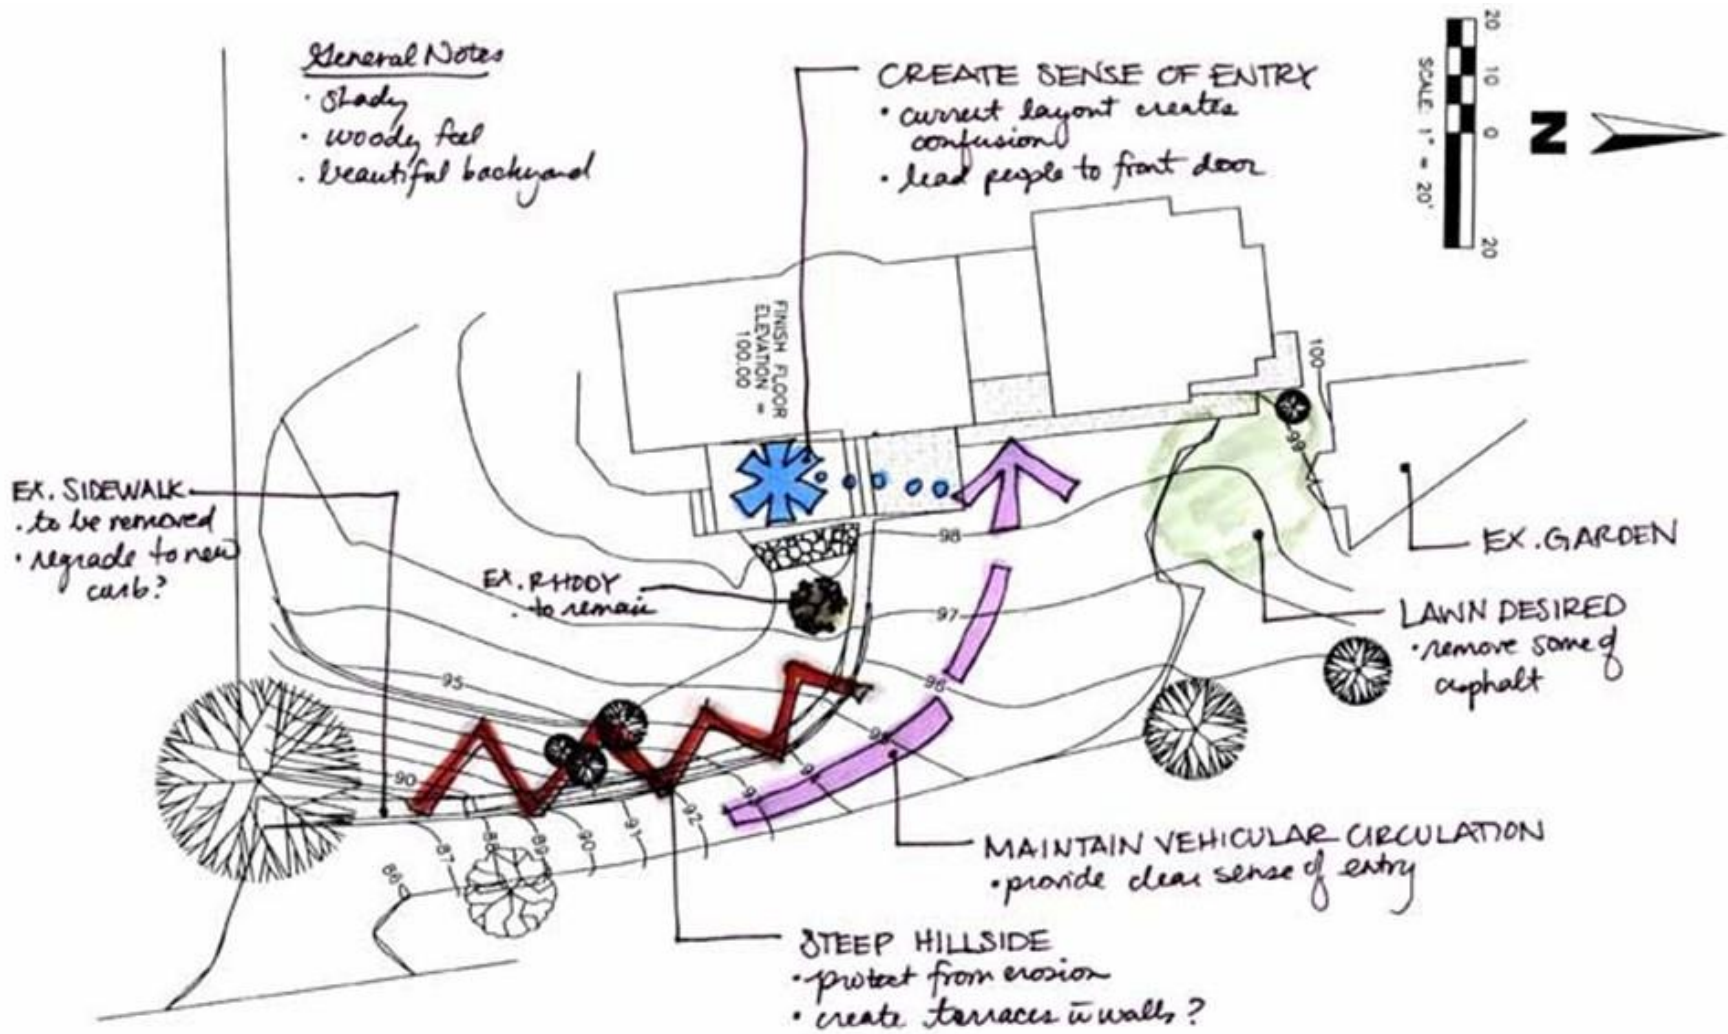 General Notes
· shady
· woody feel
· beautiful backyard
CREATE SENSE OF ENTRY
• current layout creates
confusion
• lead people to front door
20
10
0
20
SCALE: 1" = 20'
N
FINISH FLOOR
ELEVATION =
100.00
100
99
EX. SIDEWALK
• to be removed
• regrade to new
curb?
EX. RHODY
• to remain
98
97
96
95
95
94
93
92
91
90
89
88
87
86
90
EX. GARDEN
LAWN DESIRED
• remove some of
asphalt
MAINTAIN VEHICULAR CIRCULATION
• provide clear sense of entry
STEEP HILLSIDE
• protect from erosion
• create terraces w̄ walls?